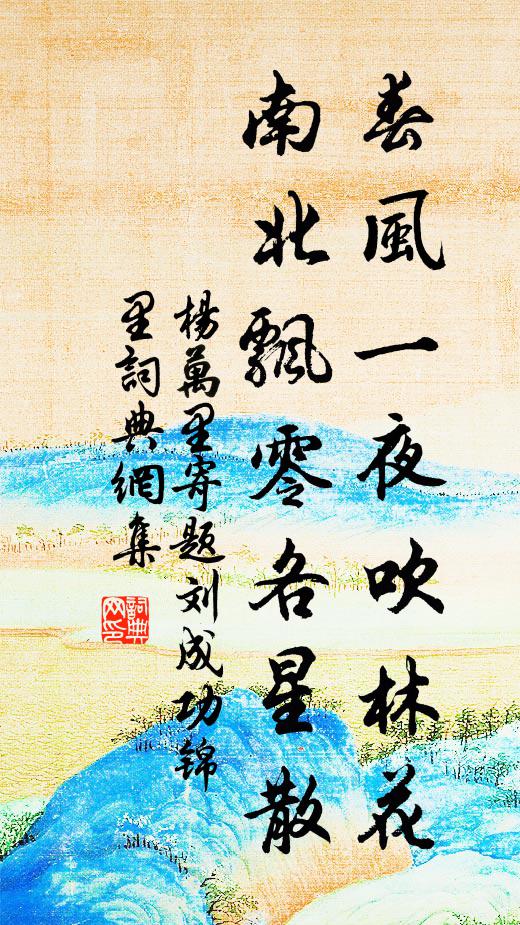 春風一夜吹林花
南北飄零各星散
楊萬里寄题刘成功锦
里詞典網集
詞典
网印